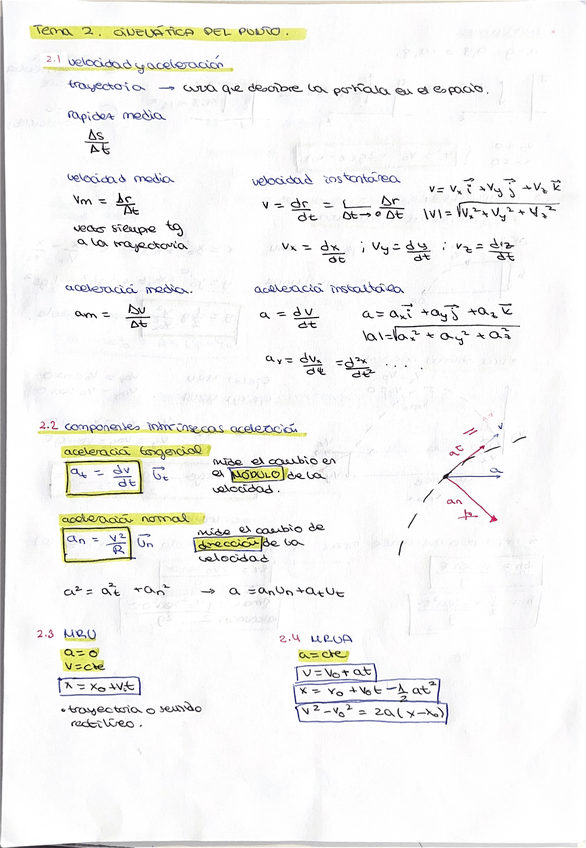 Tema 2. CINEMÁTICA DEL PUNTO.
2.1 velocidad y aceleración
trayectoria → curva que describe la partícula en el espacio.
rapidez media
Δs/Δt
velocidad media
Vm = Δr/Δt
vector siempre tg
a la trayectoria
velocidad instantánea
v = dr/dt = L Δt→0 Δr/Δt
v = vx i⃗ + vy j⃗ + vz k⃗
|v| = √(vx² + vy² + vz²)
vx = dx/dt ; vy = dy/dt ; vz = dz/dt
aceleración media.
am = ΔV/Δt
aceleración instantánea
a = dv/dt
a = ax i⃗ + ay j⃗ + az k⃗
|a| = √(ax² + ay² + az²)
ax = dvx/dt = d²x/dt² ....
2.2 componentes intrínsecas aceleración
aceleración tangencial
at = dv/dt U⃗t
mide el cambio en
el MÓDULO de la
velocidad.
aceleración normal
an = v²/R U⃗n
mide el cambio de
dirección de la
velocidad
a² = at² + an² → a = an Un + at Ut
at
v
a
an
2.3 MRU
a = 0
v = cte
x = x0 + vt
• trayectoria o sentido
rectilíneo.
2.4 MRUA
a = cte
v = v0 + at
x = x0 + v0t - 1/2 at²
v² - v0² = 2a(x - x0)